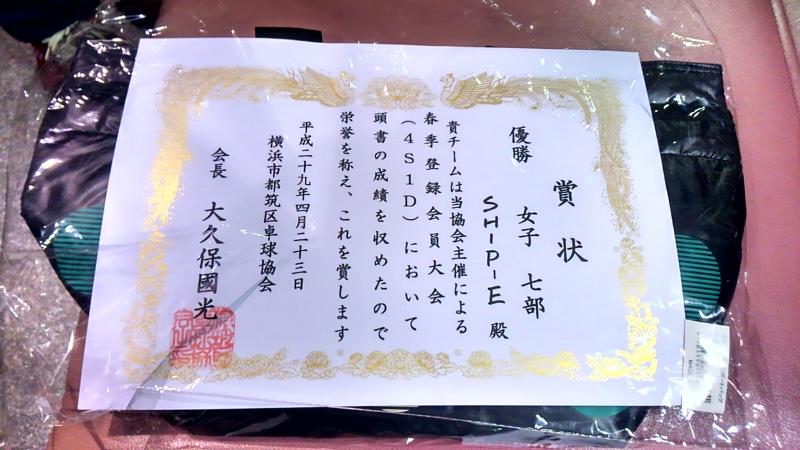 賞状
女子 七部
優勝
SHIP-E 殿
貴チームは当協会主催による
春季登録会員大会
(4S1D)において
頭書の成績を収めたので
栄誉を称え、これを賞します
平成二十九年四月二十三日
横浜市都筑区卓球協会
会長 大久保國光